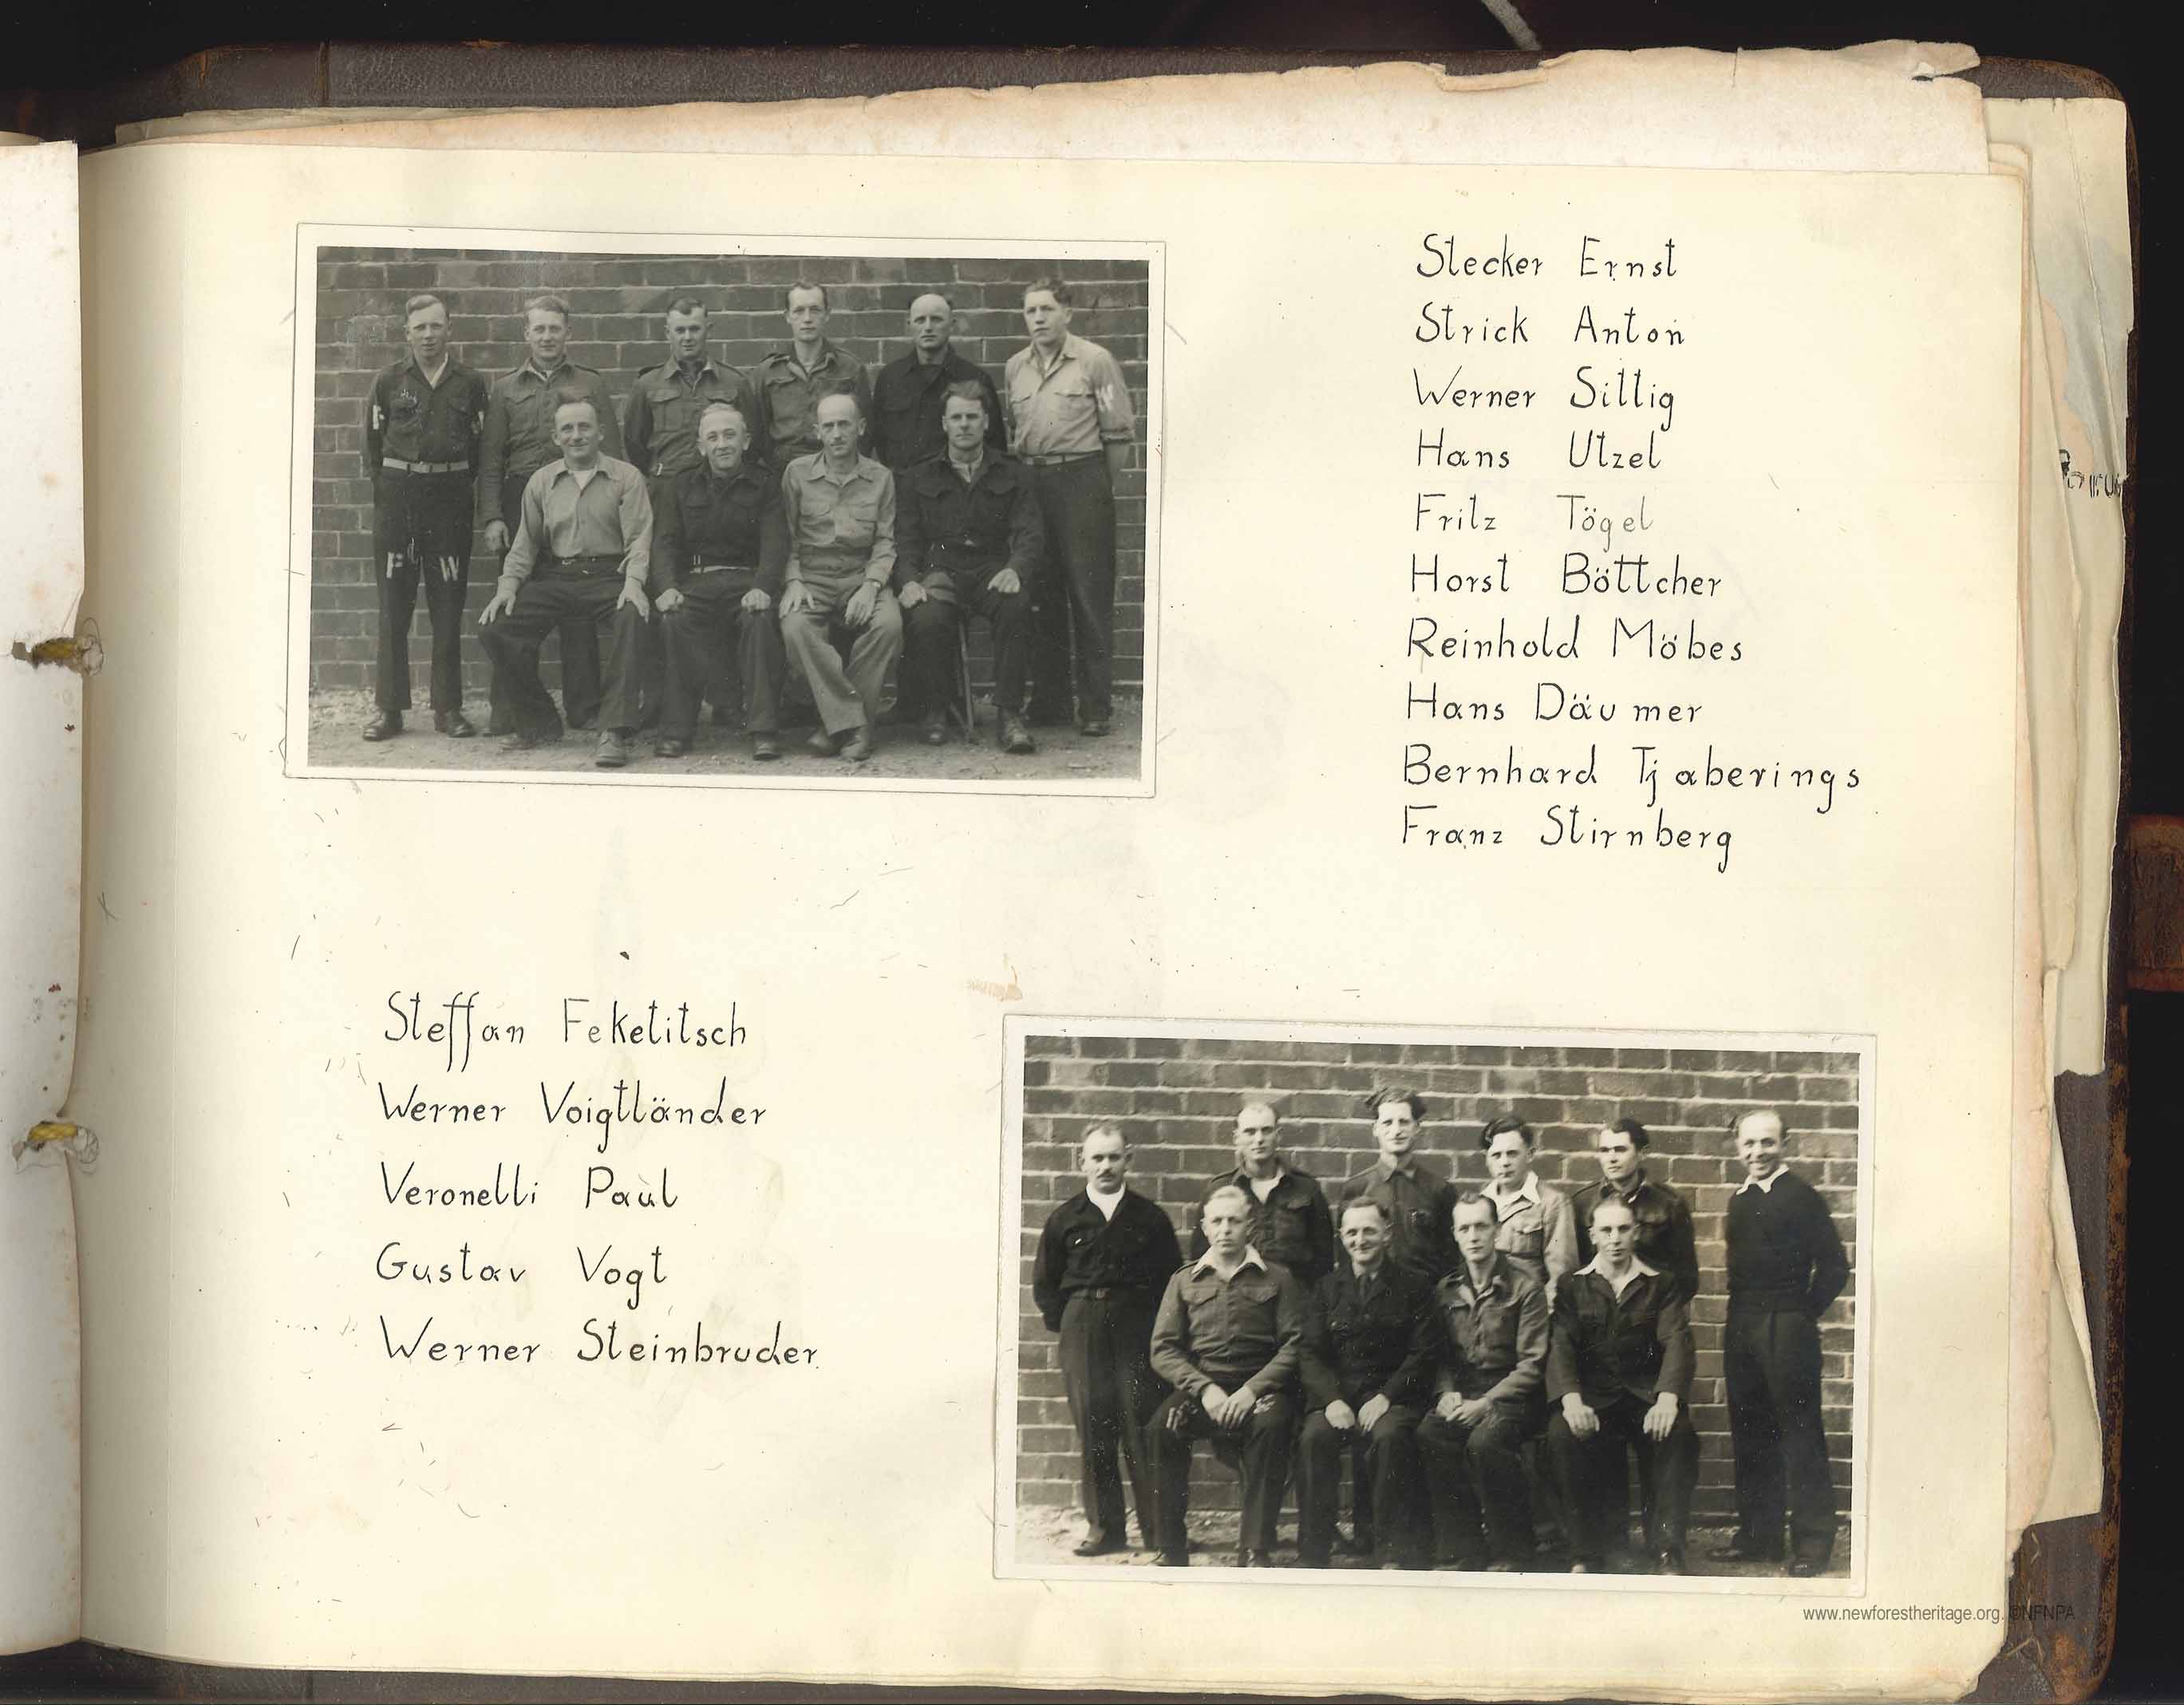 Stecker Ernst
Strick Anton
Werner Sittig
Hans Utzel
Fritz Tögel
Horst Böttcher
Reinhold Möbes
Hans Däumer
Bernhard Tjaberings
Franz Stirnberg
P W
W
Steffan Feketitsch
Werner Voigtländer
Veronelli Paul
Gustav Vogt
Werner Steinbruder
www.newforestheritage.org. ©NFNPA